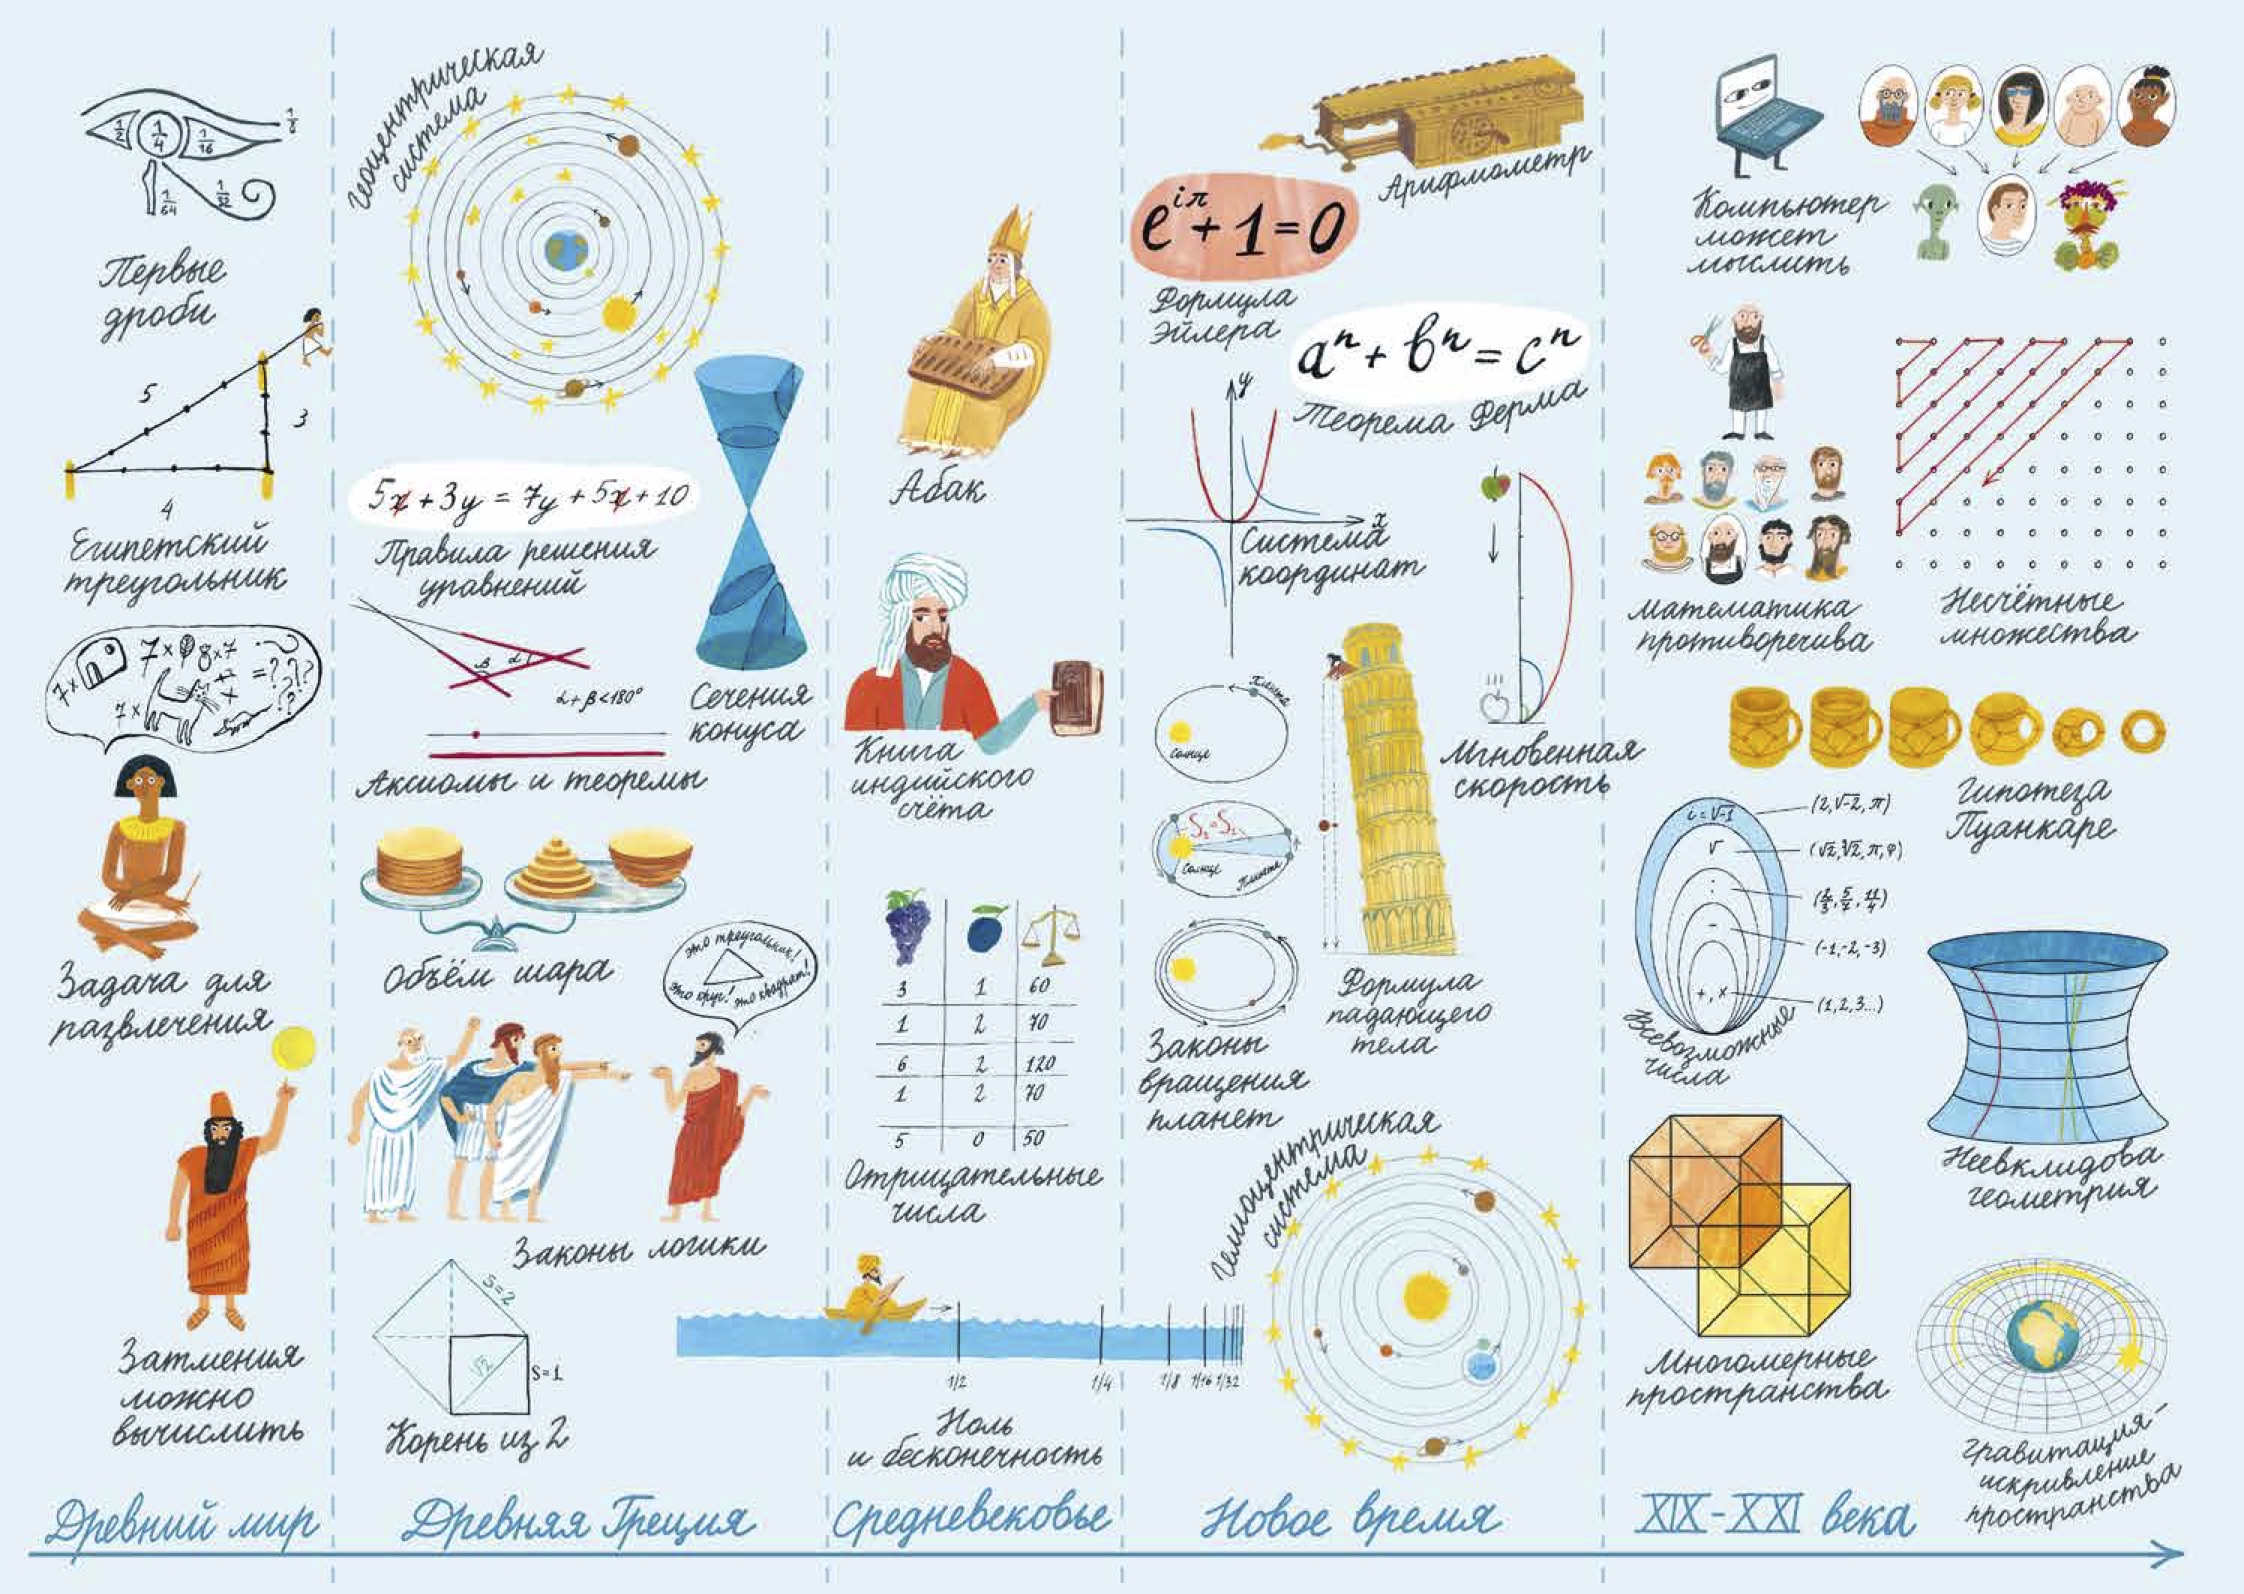 1/2
1/4
1/16
1/8
1/64
1/32
Первые
дроби
5
3
4
Египетский
треугольник
7×
7×
8×7
7×
=????
Задача для
развлечения
Затмения
можно
вычислить
Древний мир
геоцентрическая
система
5x + 3y = 7y + 5x + 10
Правила решения
уравнений
β
α
α+β<180°
Аксиомы и теоремы
Сечения
конуса
Объём шара
это треугольник!
это круг! это квадрат!
Законы логики
S=2
√2
S=1
Корень из 2
Древняя Греция
Абак
Книга
индийского
счёта
3 1 60
1 2 70
6 2 120
1 2 70
5 0 50
Отрицательные
числа
1/2 1/4 1/8 1/16 1/32
Ноль
и бесконечность
Средневековье
Арифмометр
e^iπ + 1 = 0
Формула
Эйлера
aⁿ + bⁿ = cⁿ
Теорема Ферма
y
x
Система
координат
Мгновенная
скорость
планета
Солнце
S₁=S₂
Солнце
Планета
Законы
вращения
планет
Формула
падающего
тела
гелиоцентрическая
система
Новое время
Компьютер
может
мыслить
математика
противоречива
Несчётные
множества
Гипотеза
Пуанкаре
i=√-1
(2,√-2, π)
√
(√2,∛2, π, φ)
:
(2/3, 5/7, 11/4)
-
(-1,-2,-3)
+, ×
(1,2,3...)
Всевозможные
числа
Неевклидова
геометрия
Многомерные
пространства
гравитация-
искривление
пространства
XIX-XXI века